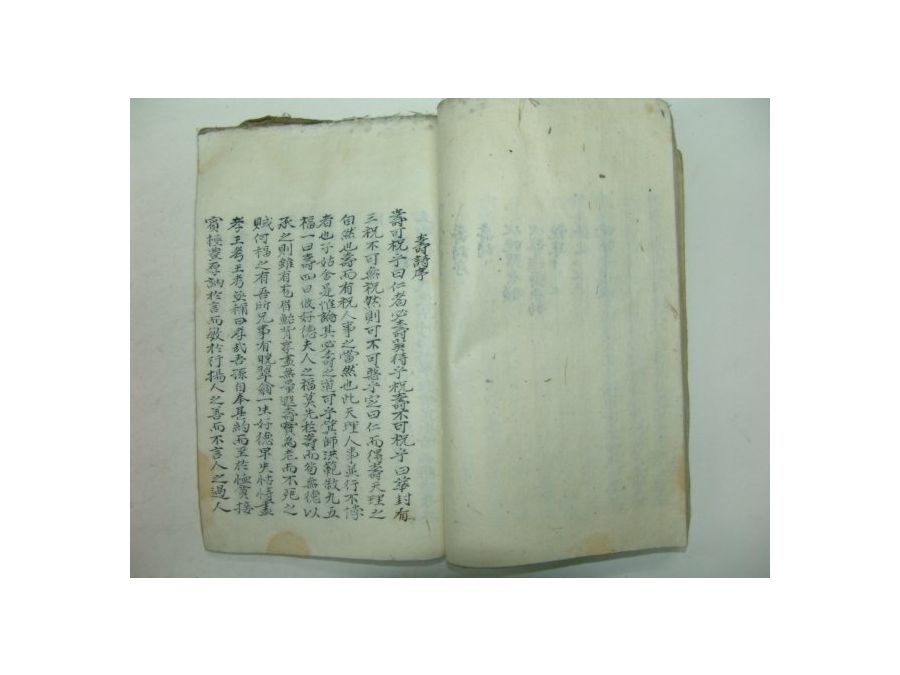 壽詩序
壽可祝乎曰仁者必壽奚待乎祝壽不可祝乎曰華封有
三祝不可無祝然則可不可惡乎定曰仁而得壽天理之
自然也壽而有祝人事之當然也此天理人事並行不悖
者也予姑舍是惟論其必壽之道可乎箕師洪範敘九五
福一曰壽四曰攸好德夫人之福莫先於壽而苟無德以
承之則雖有尨眉鮐背享盡無量遐壽實為老而不死之
賊何福之有吾所兄事有晩翠翁一生好德早失怙恃盡
孝王考王考亟稱曰孝哉吾孫自奉甚約而至於恤貧接
賓極豊厚訥於言而敏於行揚人之善而不言人之過人